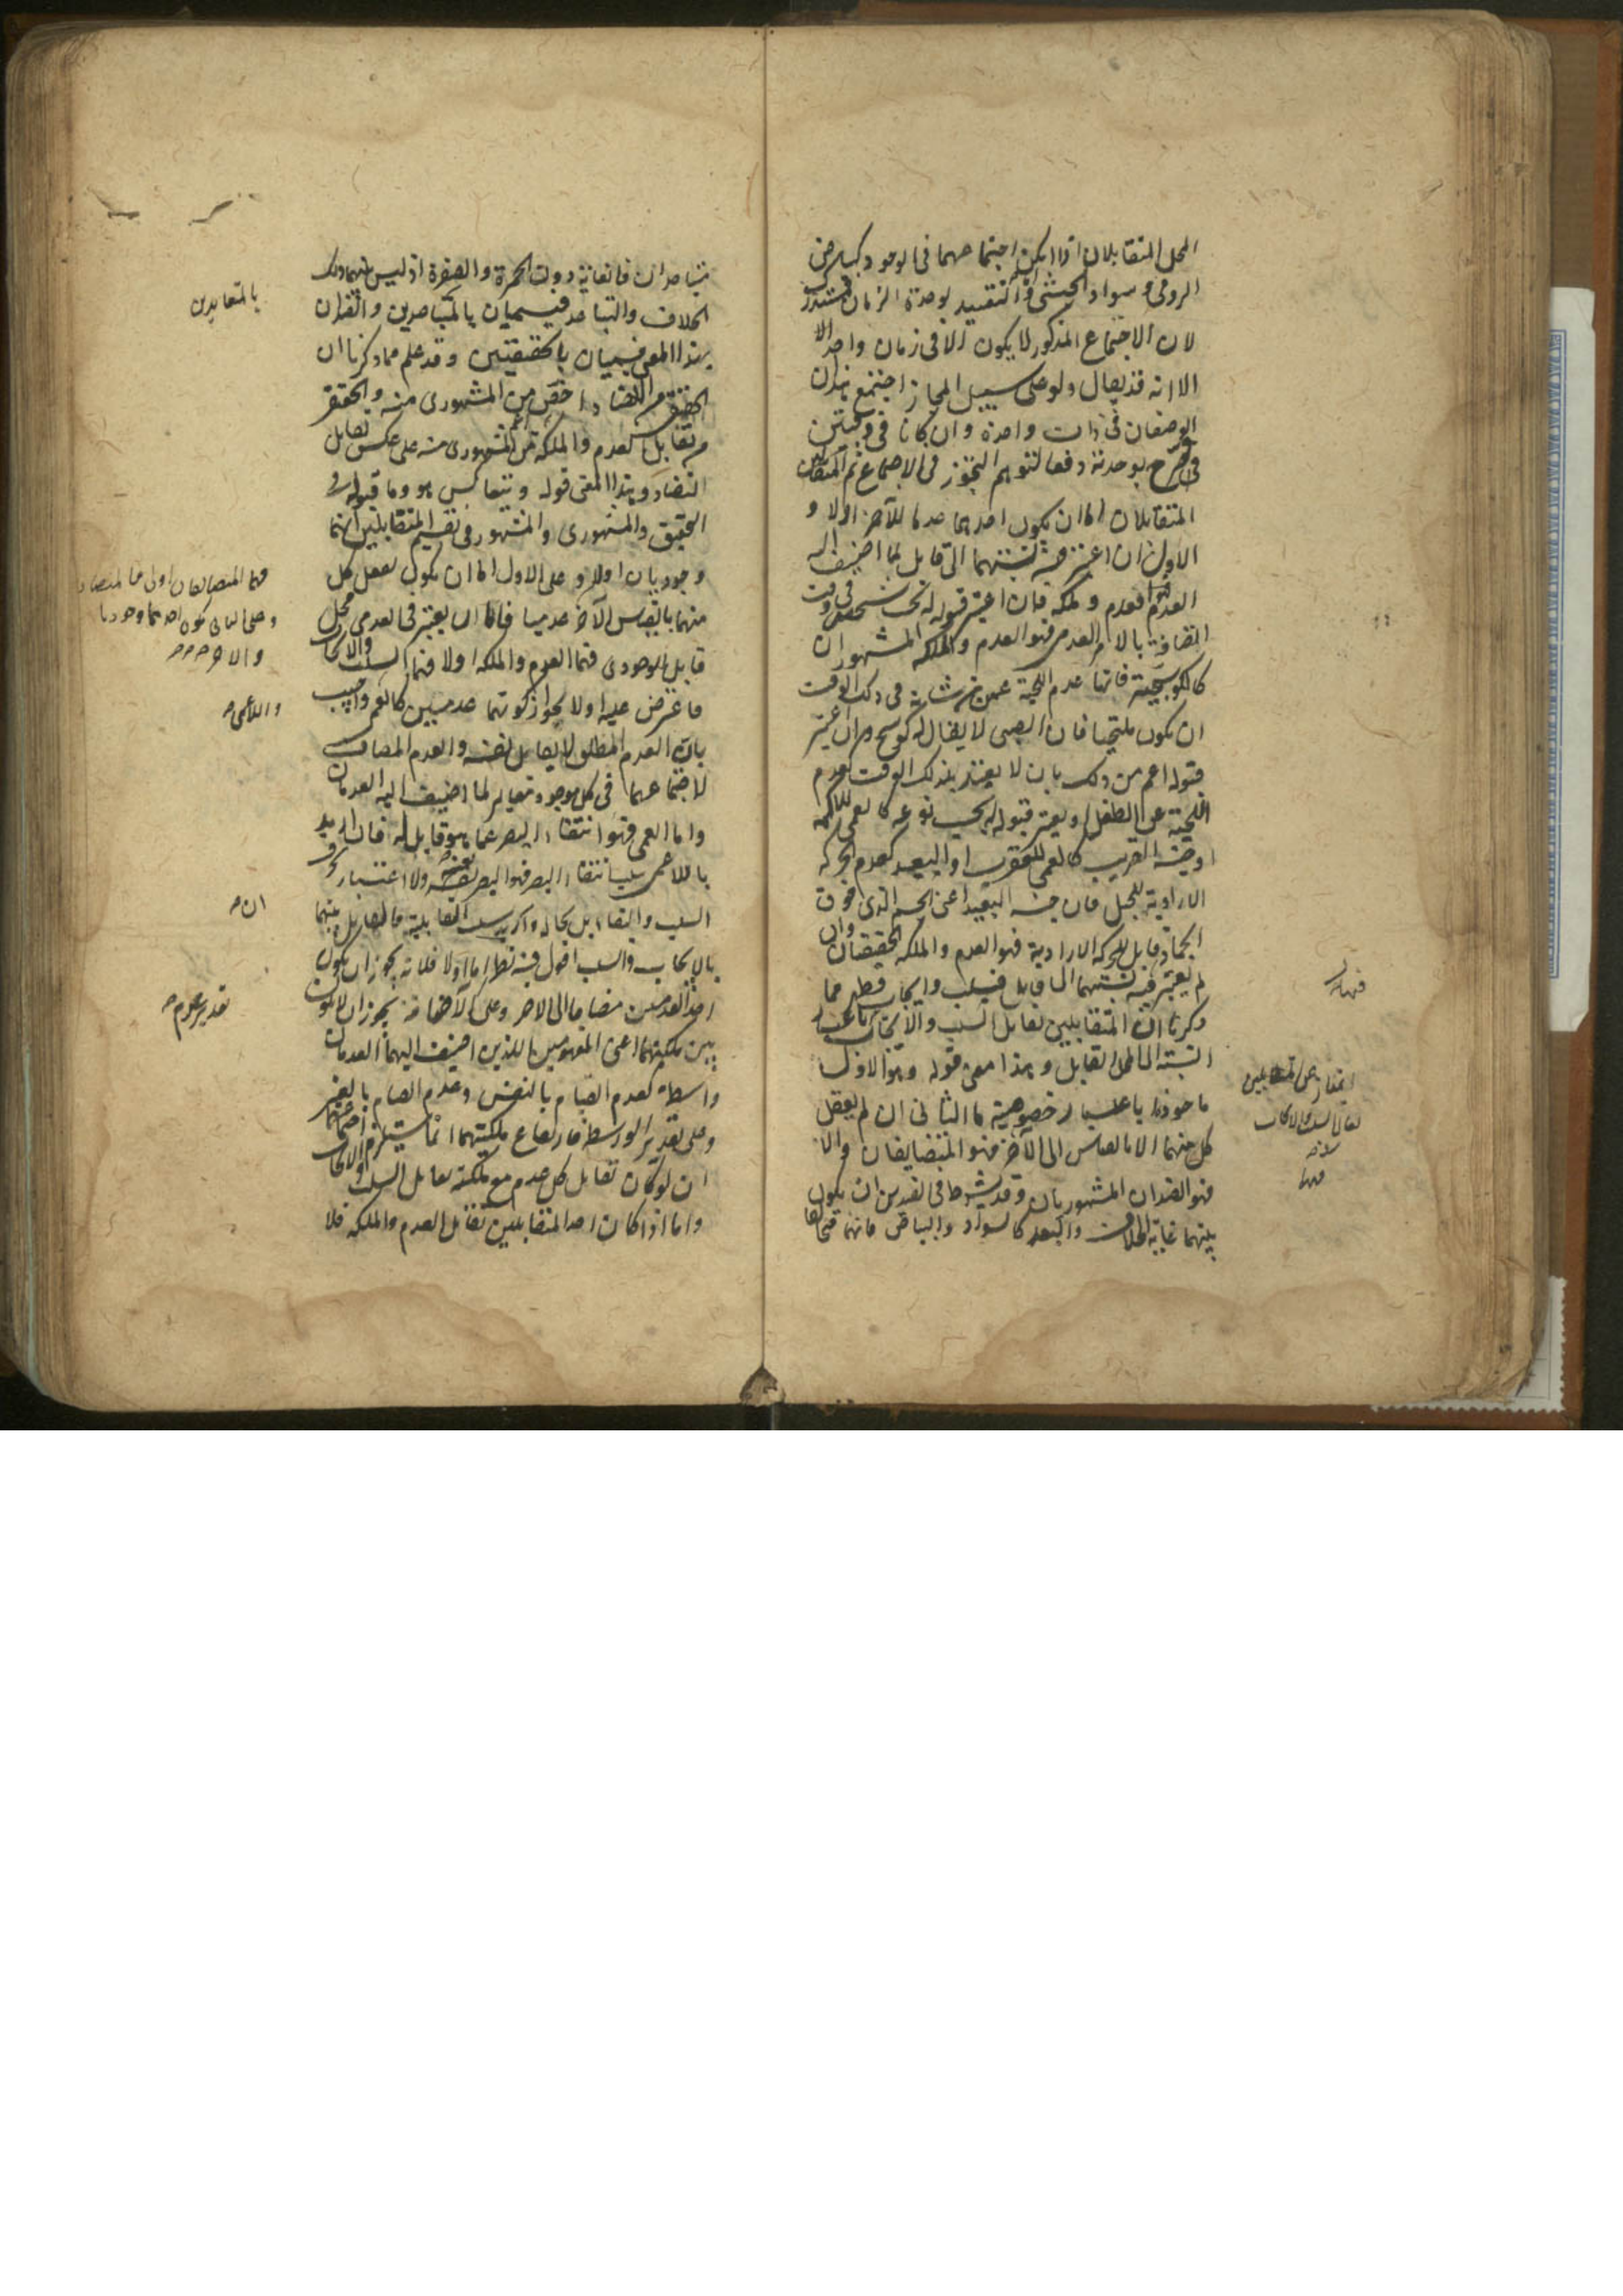 المحل المتقابلان اذ لا يمكن اجتماعهما فى الوجود كبياض
الرومى وسواد الحبشى والتقييد بوحدة الزمان مستدرك
لان الاجتماع المذكور لا يكون الا فى زمان واحد الا
الا انه قد يقال ولو على سبيل المجاز اجتمع هذان
الوصفان فى ذات واحدة وان كانا فى وقتين
فصرح بوحدته دفعا لتوهم التجوز فى الاجتماع ثم
المتقابلان اما ان يكون احدهما عدما للآخر اولا و
الاول ان اعتبر فيه نسبتهما الى قابل لما اضيف اليه
العدم فعدم وملكه فان اعتبر قبوله له بحسب شخصه فى وقت
اتصافه بالامر العدمى فهو العدم والملكه المشهوران
كالكوسجية فانها عدم اللحية عمن من شانه فى ذلك الوقت
ان يكون ملتحيا فان الصبى لا يقال له كوسج وان اعتبر
قبوله اعم من ذلك بان لا يقيد بذلك الوقت كعدم
اللحية عن الطفل او يعتبر قبوله بحسب نوعه كالعمى للاكمه
او جنسه القريب كالعمى للعقرب او البعيد كعدم الحركه
الارادية للجبل فان جنسه البعيد اعنى الجسم الذى هو فوق
الجماد قابل للحركه الارادية فهو العدم والملكه الحقيقيان وان
لم يعتبر فيه نسبتهما الى قابل فسلب وايجاب فظهر مما
ذكرنا ان المتقابلين تقابل السلب والايجاب باعتبار
النسبة الى المحل القابل وهذا معنى قوله وهو الاول
ماخوذا باعتبار خصوصية ما الثانى ان لم يعقل
كل منهما الا بالقياس الى الآخر فهو المتضايفان والا
فهو الضدان المشهوريان وقد يشترط فى الضدين ان يكون
بينهما غاية الخلاف والبعد كالسواد والبياض فانهما متخالفان
متباعدان فى الغاية دون الحمرة والصفرة اذ ليس بينهما ذلك
الخلاف والتباعد فيسميان بالمتعاندين والضدان
بهذا المعنى يسميان بالحقيقيين وقد علم مما ذكرنا ان
الحقيقى من التضاد اخص من المشهورى منه والحقيقى
من تقابل العدم والملكه اعم من المشهورى منه على عكس تقابل
التضاد وهذا معنى قوله ويتعاكس هو وما قبله فى
التحقيق والمشهورى والمشهور فى تقسيم المتقابلين انهما
وجوديان اولا وعلى الاول اما ان يكون تعقل كل
منهما بالقياس الآخر عدميا فاما ان يعتبر فى العدمى محل
قابل للوجودى فهما العدم والملكه اولا فهما السلب والايجاب
فاعترض عليه اولا بجواز كونهما عدميين كالعمى واجيب
بان العدم المطلق لا يقابل نفسه والعدم المضاف
لاجتماعهما فى كل موجود مغاير لما اضيف اليه العدمان
واما العمى فهو انتفاء البصر عما هو قابل له فان اريد
باللاعمى سلب انتفاء البصر فهو البصر بعينه ولا اعتبار بحرف
السلب والتقابل بحاله وان اريد سلب القابلية فالتقابل بينهما
بالايجاب والسلب اقول فيه نظر اما اولا فلانه يجوز ان يكون
احد العدمين مضافا الى الاخر وعلى الاضافة يجوز ان لا يكون
بين ملكيتهما اعنى المفهومين اللذين اضيف اليهما العدمان
واسطة كعدم القيام بالنفس وعدم القيام بالغير
وعلى تقدير الواسطة فارتفاع ملكيتهما انما يستلزم اجتماعهما
ان لو كان تقابل كل عدم مع ملكته تقابل السلب والايجاب
واما اذا كان احد المتقابلين تقابل العدم والملكه فلا
بالمتعاندين
فهما المتضايفان اولى فالمتضاد
وعلى الثانى يكون احدهما وجوديا
والآخر
واللاعمى
ان
تقدير عدم
تقابل السلب والايجاب